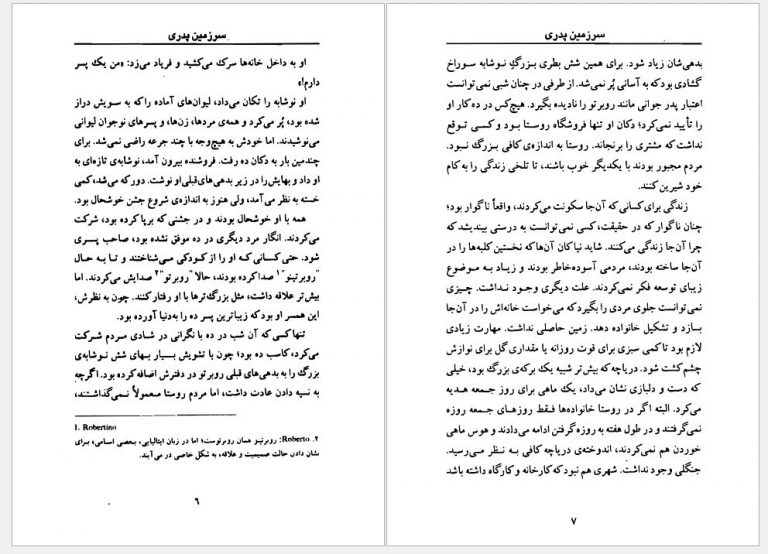 سرزمین پدری
او به داخل خانه‌ها سرک می‌کشید و فریاد می‌زد: «من یک پسر
دارم!»
او نوشابه را تکان می‌داد، لیوان‌های آماده را که به سویش دراز
شده بود، پُر می‌کرد و همه‌ی مردها، زن‌ها، و پسرهای نوجوان لیوانی
می‌نوشیدند. اما خودش به هیچ‌وجه با چند جرعه راضی نمی‌شد. برای
چندمین بار به دکان ده رفت. فروشنده بیرون آمد، نوشابه‌ی تازه‌ای به
او داد و بهایش را در زیر بدهی‌های قبلی او نوشت. دور که می‌شد، کمی
خسته به نظر می‌آمد، ولی هنوز به اندازه‌ی شروع جشن خوشحال بود.
همه با او خوشحال بودند و در جشنی که برپا کرده بود، شرکت
می‌کردند. انگار مرد دیگری در ده موفق نشده بود، صاحب پسری
شود. حتی کسانی که او را از کودکی می‌شناختند و تا به حال
"روبرتینو"۱ صدا کرده بودند، حالا "روبرتو"۲ صدایش می‌کردند. اما
بیش‌تر علاقه داشت، مثل بزرگ‌ترها با او رفتار کنند. چون به نظرش،
این همسر او بود که زیباترین پسر ده را به‌دنیا آورده بود.
تنها کسی که آن شب در ده با نگرانی در شادی مردم شرکت
می‌کرد، کاسب ده بود؛ چون با تشویش بسیار بهای شش نوشابه‌ی
بزرگ را به بدهی‌های قبلی روبرتو در دفترش اضافه کرده بود. اگرچه
به نسیه دادن عادت داشت، اما مردم روستا معمولاً نمی‌گذاشتند،
1. Robertino
۲. Roberto: روبرتینو همان روبرتوست؛ اما در زبان ایتالیایی، بعضی اسامی برای
نشان دادن حالت صمیمیت و علاقه، به شکل خاصی در می‌آیند.
۶
سرزمین پدری
بدهی‌شان زیاد شود. برای همین شش بطری بزرگِ نوشابه سوراخ
گشادی بود که به آسانی پُر نمی‌شد. از طرفی در چنان شبی نمی‌توانست
اعتبار پدر جوانی مانند روبرتو را نادیده بگیرد. هیچ‌کس در ده کار او
را تأیید نمی‌کرد؛ دکان او تنها فروشگاه روستا بود و کسی توقع
نداشت که مشتری را برنجاند. روستا به اندازه‌ی کافی بزرگ نبود.
مردم مجبور بودند با یکدیگر خوب باشند، تا تلخی زندگی را به کام
خود شیرین کنند.
زندگی برای کسانی که آن‌جا سکونت می‌کردند، واقعاً ناگوار بود؛
چنان ناگوار که در حقیقت، کسی نمی‌توانست به درستی بیندیشد که
چرا آن‌جا زندگی می‌کنند. شاید نیاکان آن‌ها که نخستین کلبه‌ها را در
آن‌جا ساخته بودند، مردمی آسوده‌خاطر بودند و زیاد به موضوع
زیبای توسعه فکر نمی‌کردند. علت دیگری وجود نداشت. چیزی
نمی‌توانست جلوی مردی را بگیرد که می‌خواست خانه‌اش را در آن‌جا
بسازد و تشکیل خانواده دهد. زمین حاصلی نداشت. مهارت زیادی
لازم بود تا کمی سبزی برای قوت روزانه یا مقداری گل برای نوازش
چشم کشت شود. دریاچه که بیش‌تر شبیه یک برکه‌ی بزرگ بود، خیلی
که دست و دلبازی نشان می‌داد، یک ماهی برای روز جمعه هدیه
می‌کرد. البته اگر در روستا خانواده‌ها فقط روزهای جمعه روزه
نمی‌گرفتند و در طول هفته به روزه گرفتن ادامه می‌دادند و هوس ماهی
خوردن هم نمی‌کردند، اندوخته‌ی دریاچه کافی به نظر می‌رسید.
جنگلی وجود نداشت. شهری هم نبود که کارخانه و کارگاه داشته باشد
۷